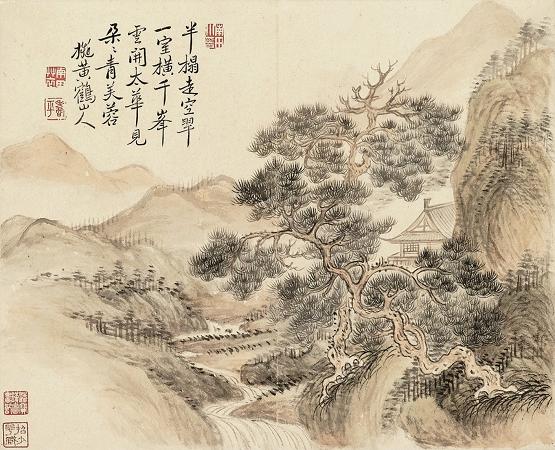 半榻走空翠
一室横千峯
雲開太華見
朵〻青芙蓉
橅黄鶴山人